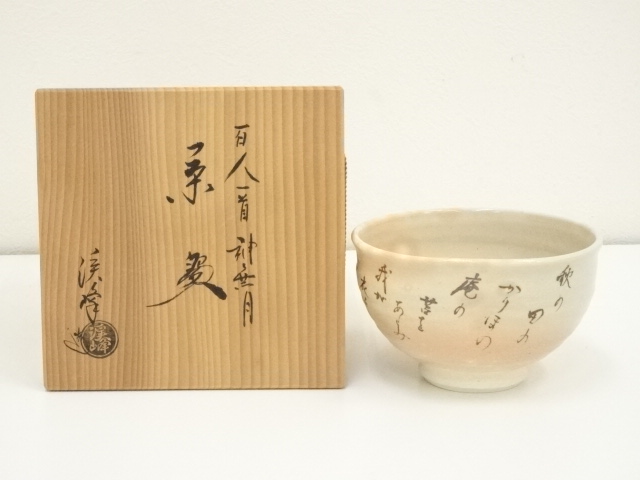 百人一首 神無月
茶盌
渓峰造
秋の
田の
かりほの
庵の
苫を
あらみ
我が